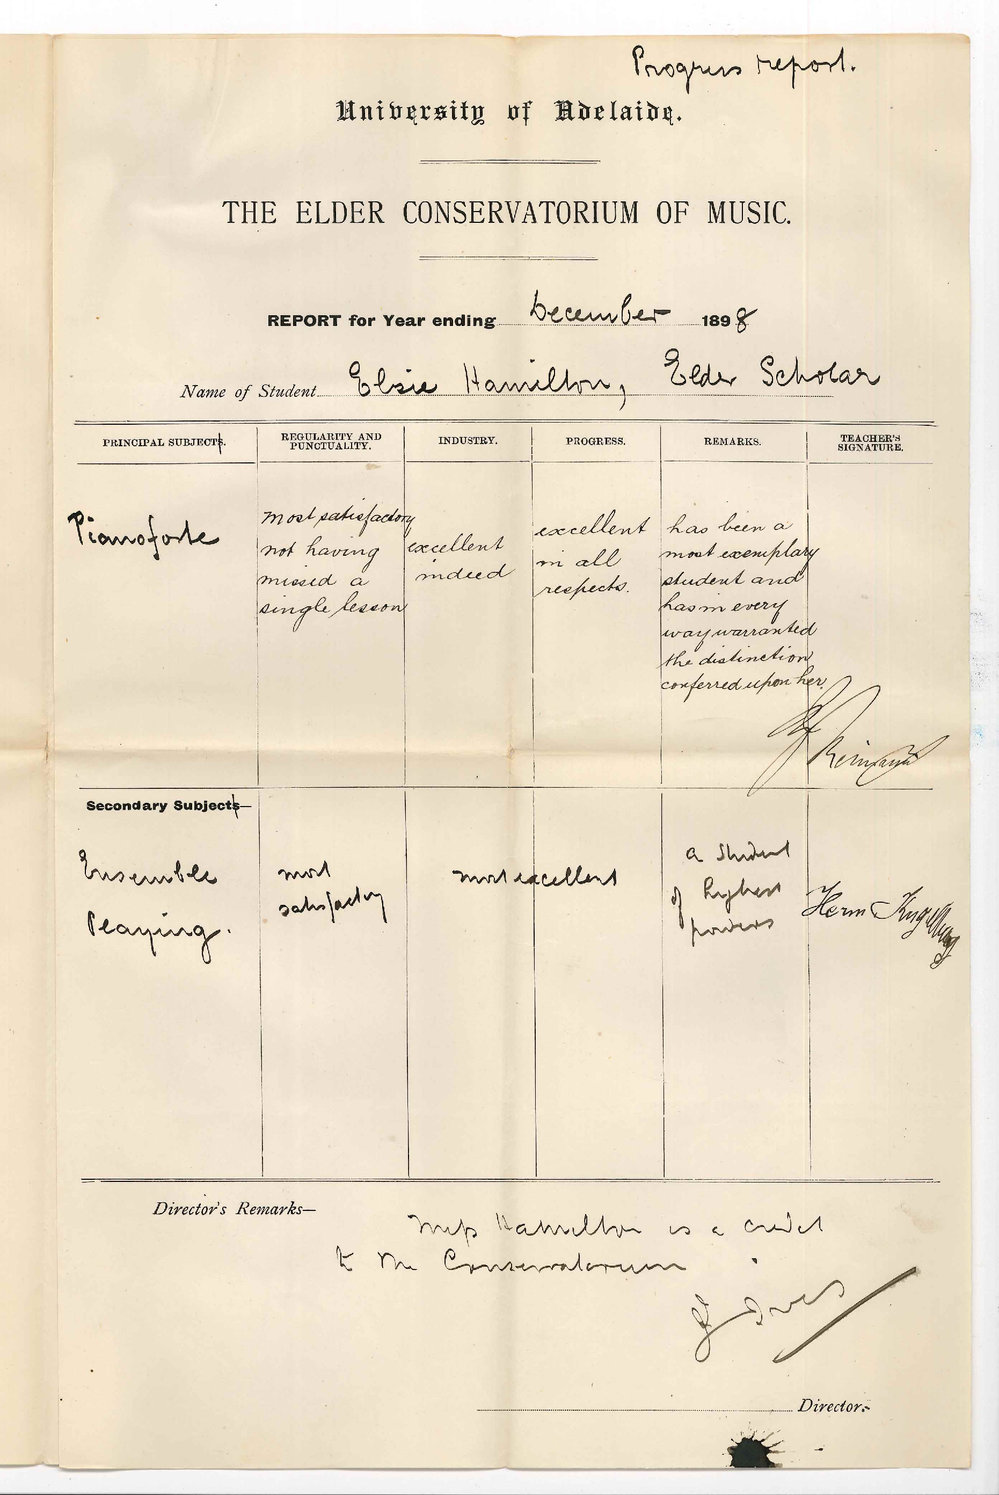 Progress report.
University of Adelaide.
THE ELDER CONSERVATORIUM OF MUSIC.
REPORT for Year ending December 1898
Name of Student Elsie Hamilton, Elder Scholar
PRINCIPAL SUBJECTS.
REGULARITY AND
PUNCTUALITY.
INDUSTRY.
PROGRESS.
REMARKS.
TEACHER'S
SIGNATURE.
Pianoforte
most satisfactory
not having
missed a
single lesson
excellent
indeed
excellent
in all
respects.
has been a
most exemplary
student and
has in every
way warranted
the distinction
conferred upon her.
Reimann
Secondary Subjects—
Ensemble
Playing.
most
satisfactory
most excellent
a student
of highest
powers
Herm
Director's Remarks—
Miss Hamilton is a credit
to the Conservatorium
J Ives
Director.